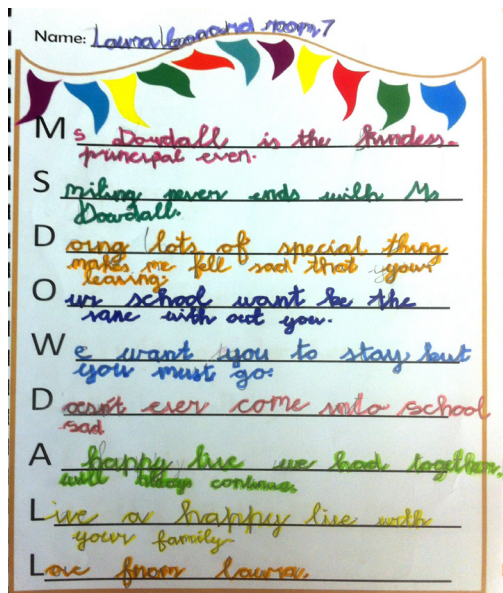 Name: Laura Leonard room 7
Ms Dowdall is the kindess
principal ever.
Smiling never ends with Ms
Dowdall.
Doing lots of special thing
makes me fell sad that your
leaving.
Our school want be the
sane with out you.
We want you to stay but
you must go.
Doesn't ever come into school
sad
A happy live we had together,
will always continue.
Live a happy live with
your family
Love from laura.